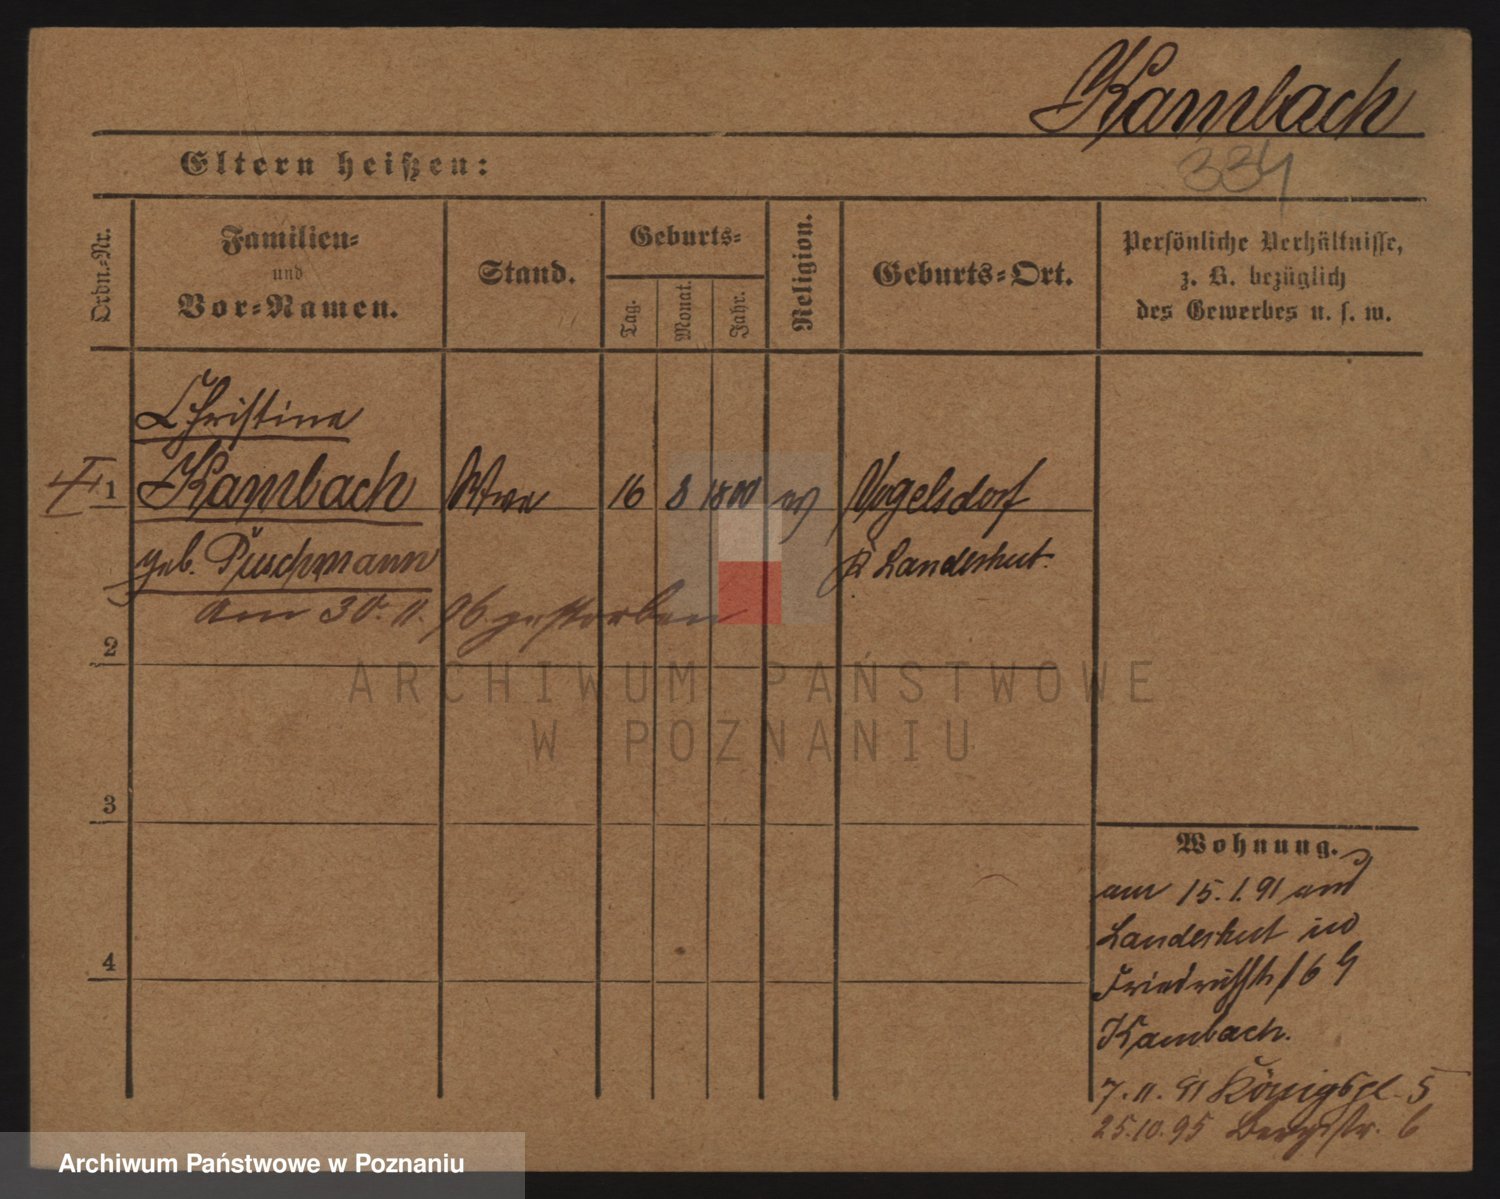 Kambach
334
Eltern heißen:
Ordn.-Nr.
Familien-
und
Vor-Namen.
Stand.
Geburts-
Tag.
Monat.
Jahr.
Religion.
Geburts-Ort.
Persönliche Verhältnisse,
z. B. bezüglich
des Gewerbes u. s. w.
Christine
1 Kambach Wwe 16 8 1800 ev Vogelsdorf
geb. Puschmann Landeshut.
am 30. 11. 96 gestorben
2
3
4
Wohnung.
am 15.1.91 aus
Landeshut in
Friedrichstr 16
Kambach.
7.11.91 Königspl. 5
25.10.95 Bergstr. 6
ARCHIWUM PAŃSTWOWE
W POZNANIU
Archiwum Państwowe w Poznaniu